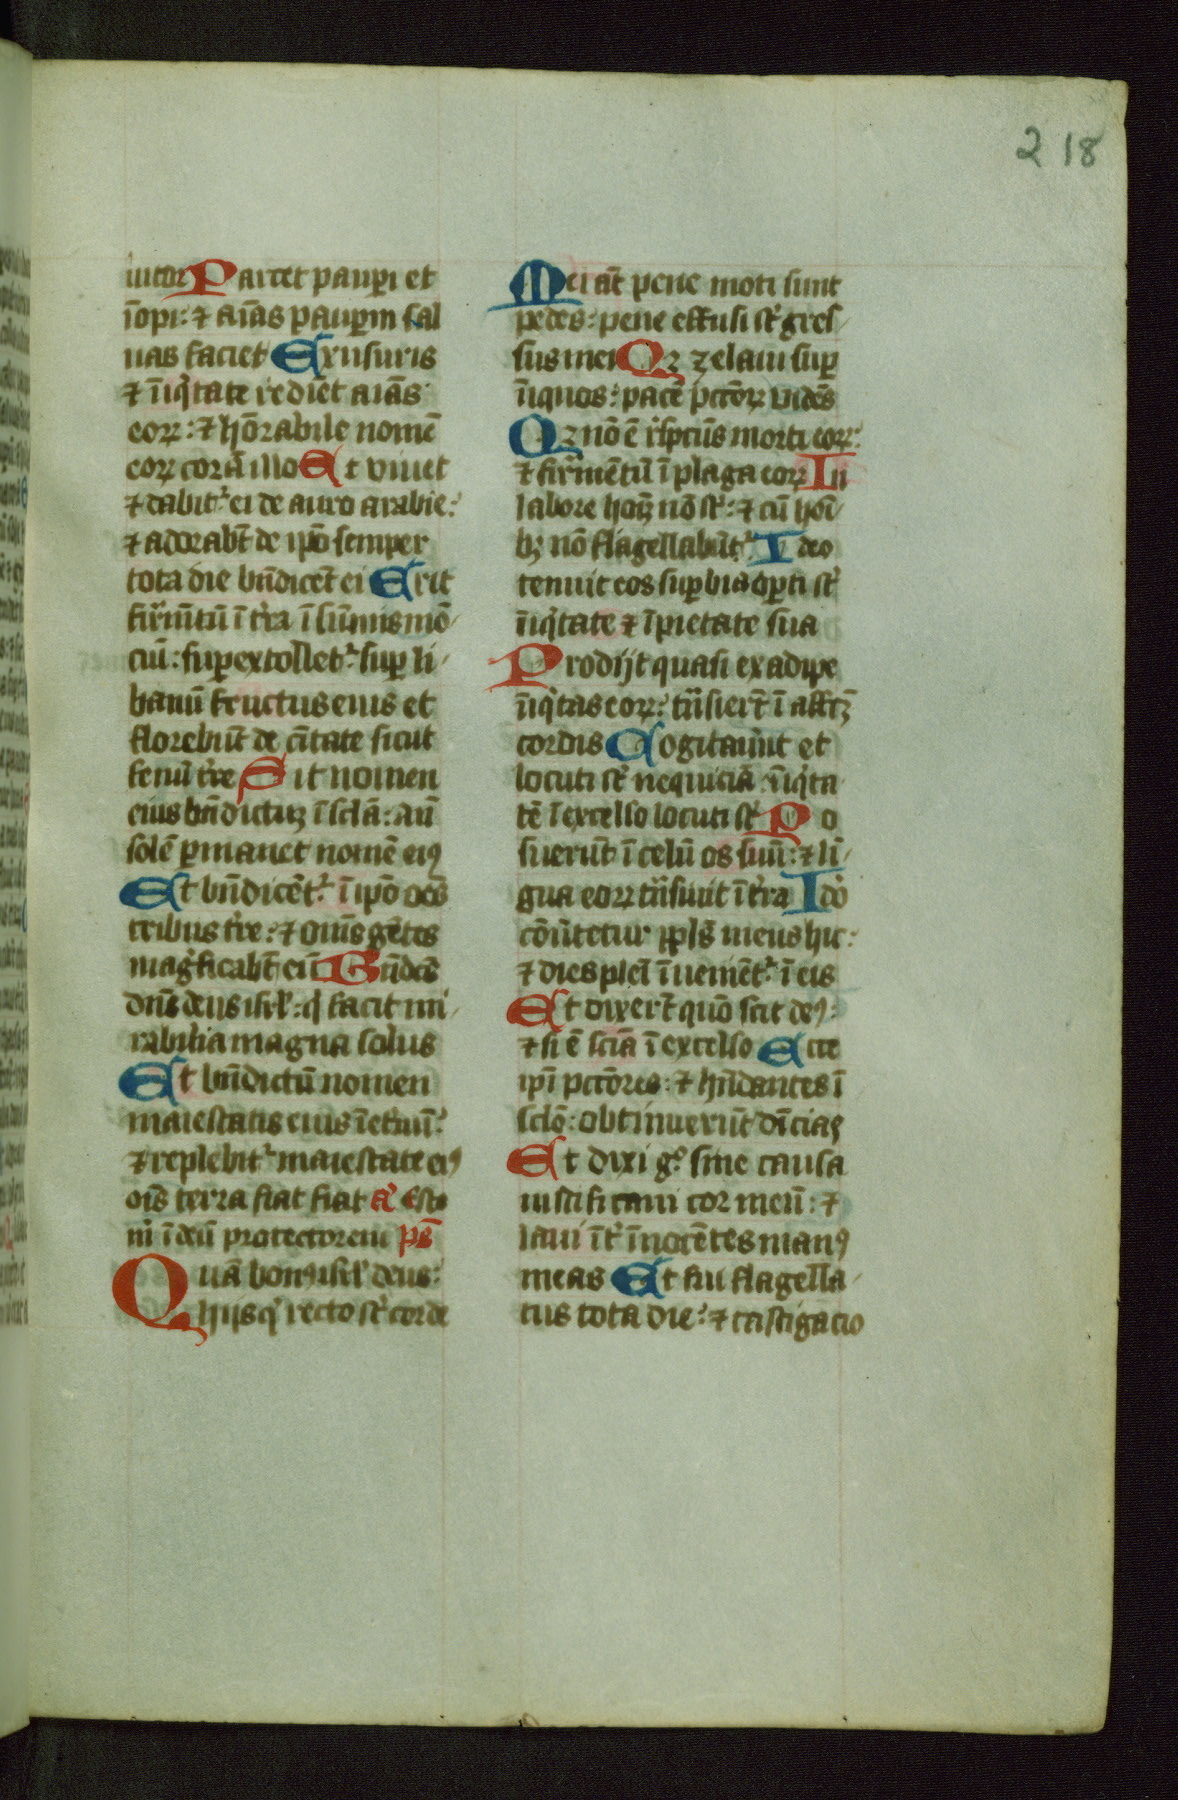 218
iutor Parcet paupi et
īopi: ⁊ aīas paupum sal
uas faciet Ex usuris
⁊ īiqͥtate redimet aīas
eoꝝ: ⁊ hōrabile nomē
eoꝝ corā illo Et viuet
⁊ dabitͬ ei de auro arabie:
⁊ adorabūt de ipō semper
tota die bn̄dicent ei Erit
firmītū ī tͬra ī sūmis mō
ciū: supextolletͬ sup li
banū fructus eius et
florebūt de cītate sicut
fenū tͬre Sit nomen
eius bn̄dictuꝫ ī sclā: an̄
solē pmanet nomē eiꝰ
Et bn̄dicētͬ ī ipō oēs
tribus tͬre: ⁊ om̄s gētes
magͥficabūt eū Bn̄dcūs
dn̄s deus isrl̄: qͥ facit mi
rabilia magna solus
Et bn̄dictū nomen
maiestatis eius ī etnū:
⁊ replebitͬ maiestate eiꝰ
oīs terra fiat fiat aͣ Esto
m̄ ī deū protectorem ps̄
Quā bonꝰ isrl̄ deus:
hijs qͥ recto st̄ corde
Mei aūt pene moti sunt
pedes: pene effusi st̄ gres
sus mei Qꝫ zelaui sup
īiquos: pacē pctōꝝ vidēs
Qꝫ nō ē rͥspctūs morti eoꝝ:
⁊ firmētū ī plaga eoꝝ In
labore hoīꝫ nō st̄: ⁊ cū hoī
bꝫ nō flagellabūtͬ Ideo
tenuit eos supbia opti st̄
īiqͥtate ⁊ īpietate sua
Prodijt quasi ex adipe
īiqͥtas eoꝝ: trāsierūt ī affctꝫ
cordis Cogitauūt et
locuti st̄ nequiciā: īiqͥta
tē ī excelso locuti st̄ Po
suerūt ī celū os suū: ⁊ lī
gua eoꝝ trāsiuit ī tͬra Idō
cōūtetur ppl̄s meus hic:
⁊ dies pleī īueniētͬ ī eis
Et dixerūt quō scit deꝰ:
⁊ si ē sciā ī excelso Ecce
ipī pctōres: ⁊ hn̄dantes ī
sclō: obtinuerūt dīcias
Et dixi gͦ sine causa
iustificaui cor meū: ⁊
laui īt̄ īnocētes manꝰ
meas Et fui flagella
tus tota die: ⁊ castigacio